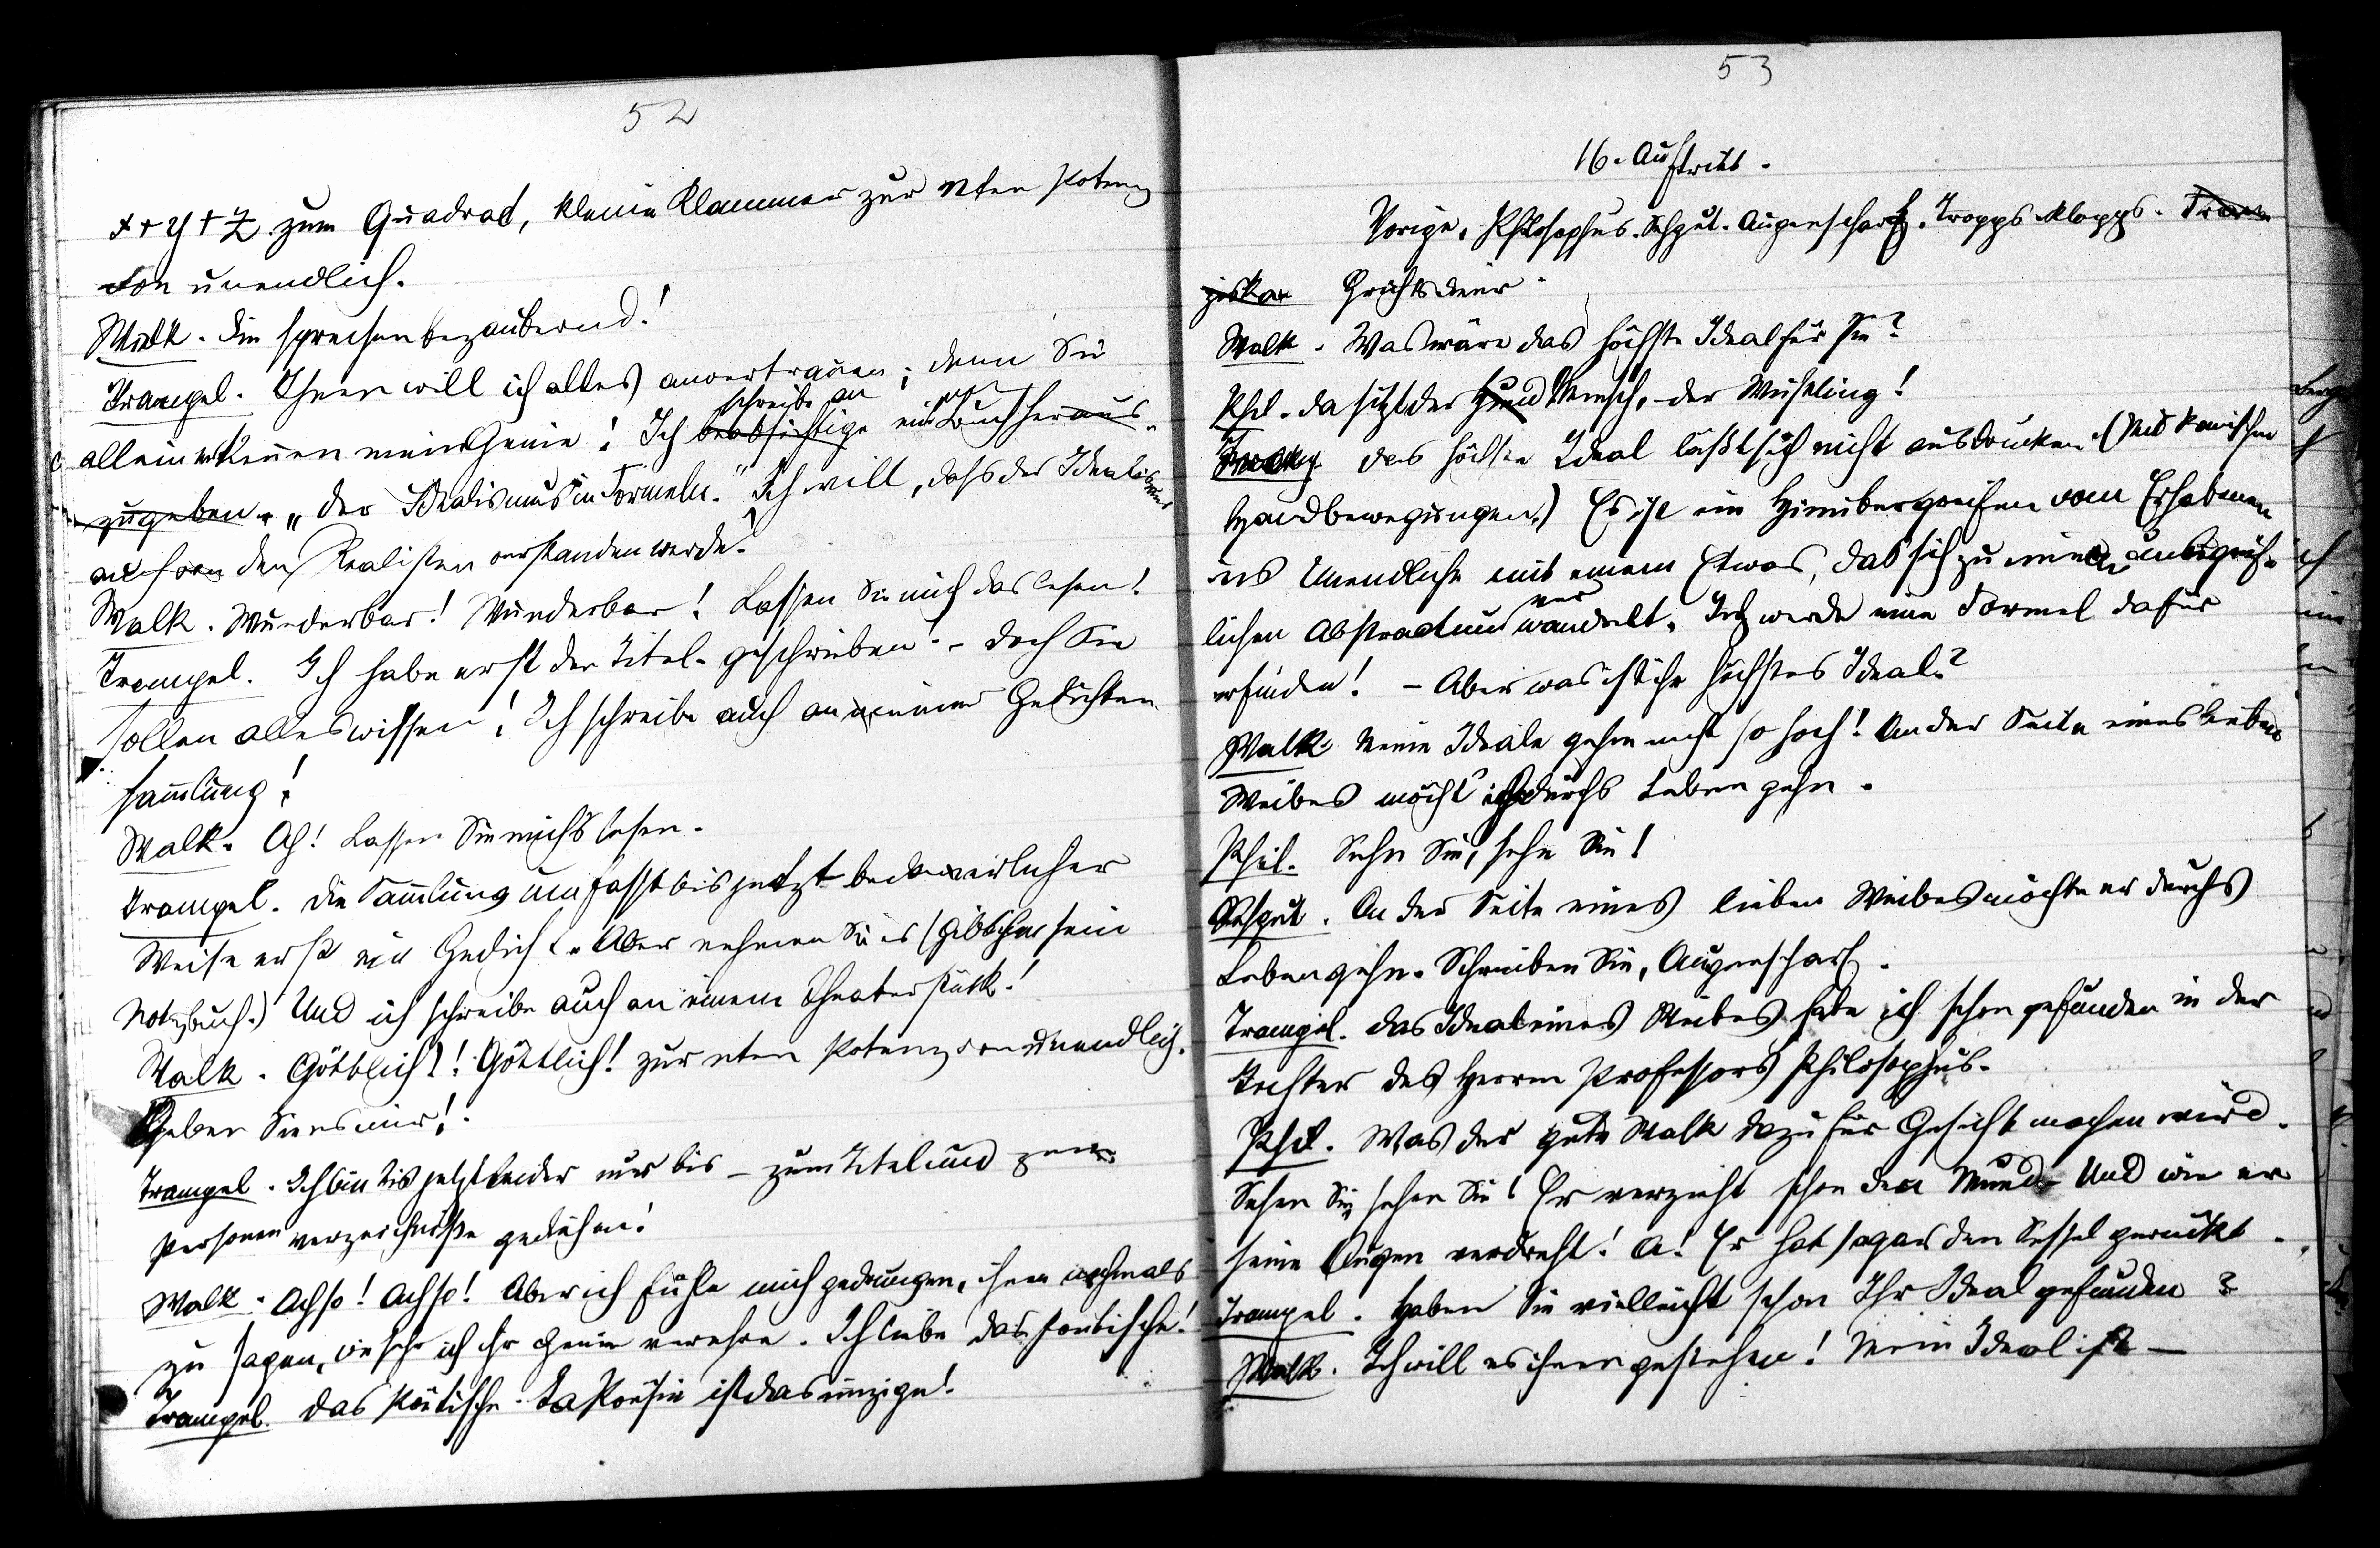 52
x + y + z zum Quadrat, kleine Klammer zur nten Potenz
von unendlich.
Walk. Sie sprechen bezaubernd!
Trampel. Ihnen will ich alles anvertrauen; denn Sie
allein erkennen mein Genie! Ich beabsichtige ein Buch heraus-
schreibe an
zugeben. „Der Idealismus in Formeln." Ich will, daſs der Idealismus
auch von den Realisten verstanden werde!
Walk. Wunderbar! Wunderbar! Lassen Sie mich das lesen!
Trampel. Ich habe erst den Titel geschrieben! – Doch Sie
sollen alles wissen! Ich schreibe auch an einer Gedichten
sammlung!
Walk. Ah! Lassen Sie michs lesen.
Trampel. Die Sammlung umfasst bis jetzt bedauerlicher
Weise erst ein Gedicht. Aber nehmen Sie es (gibt ihm sein
Notizbuch.) Und ich schreibe auch an einem Theaterstück!
Walk. Göttlich! Göttlich! zur nten Potenz von unendlich.
Geben Sie es mir!
Trampel. Ich bin bis jetzt leider nur bis – zum Titel und zum
Personenverzeichniſse gediehen!
Walk. Achso! Achso! Aber ich fühle mich gedrungen, ihnen nochmals
zu sagen, wie sehr ich ihr Genie verehre. Ich liebe das Poetische!
Trampel. Das Poetische. La Poesie ist das einzige!
53
16. Auftritt.
Vorige. Philosophus. Sehgut. Augenscharf. Tropps. Klopps. Fran
ziska Grichtsdiener.
Walk. Was wäre das höchste Ideal für Sie?
Phil. Da sitzt der Hund Mensch, der Wüstling!
Tramp. Das höchste Ideal läßt sich nicht ausdrucken. (Mit komischen
Handbewegungen.) Es ist ein Hinübergreifen vom Erhabenen
ins Unendliche mit einem Etwas, das sich zu einem unbegreif-
lichen Abstractum verwandelt. Ich werde eine Formel dafür
erfinden! – Aber was ist ihr höchstes Ideal?
Walk. Meine Ideale gehen nicht so hoch! An der Seite eines lieben
Weibes möcht' ich durchs Leben gehn.
Phil. Sehn Sie, sehn Sie!
Sehgut. An der Seite eines lieben Weibes möchte er durchs
Leben gehn. Schreiben Sie, Augenscharf.
Trampel. Das Ideal eines Weibes habe ich schon gefunden in der
Tochter des Herrn Professors Philosophus.
Phil. Was der gute Walk dazu für Gesicht machen wird.
Sehen Sie, sehen Sie! Er verzieht schon den Mund. Und wie er
seine Augen verdreht! A! Er hat sogar den Sessel gerückt.
Trampel. Haben Sie vielleicht schon Ihr Ideal gefunden?
Walk. Ich will es ihnen gestehen! Mein Ideal ist –